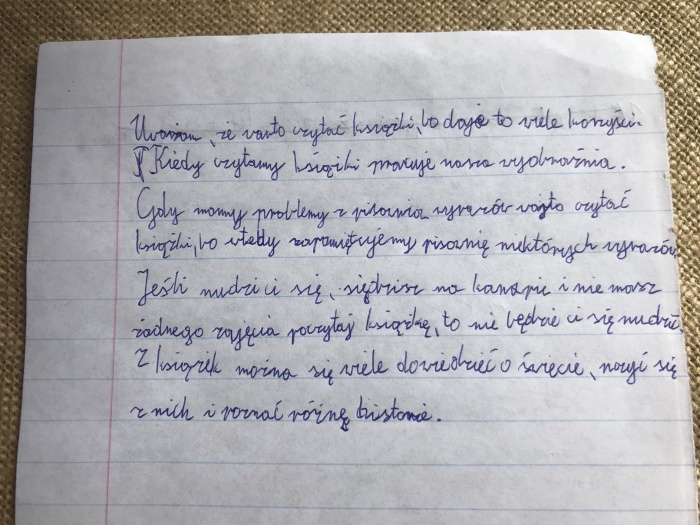 Uważam, że warto czytać książki, bo daje to wiele korzyści.
Kiedy czytamy książki pracuje nasza wyobraźnia.
Gdy mamy problemy z pisownią wyrazów warto czytać
książki, bo wtedy zapamiętujemy pisownię niektórych wyrazów.
Jeśli nudzi ci się, siędzisz na kanapie i nie masz
żadnego zajęcia poczytaj książkę, to nie będzie ci się nudzić.
Z książek można się wiele dowiedzieć o świecie, nauczyć się
z nich i poznać różne historie.